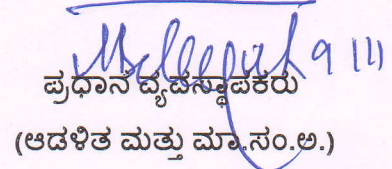 ಪ್ರಧಾನ ವ್ಯವಸ್ಥಾಪಕರು
(ಆಡಳಿತ ಮತ್ತು ಮಾ.ಸಂ.ಅ.)